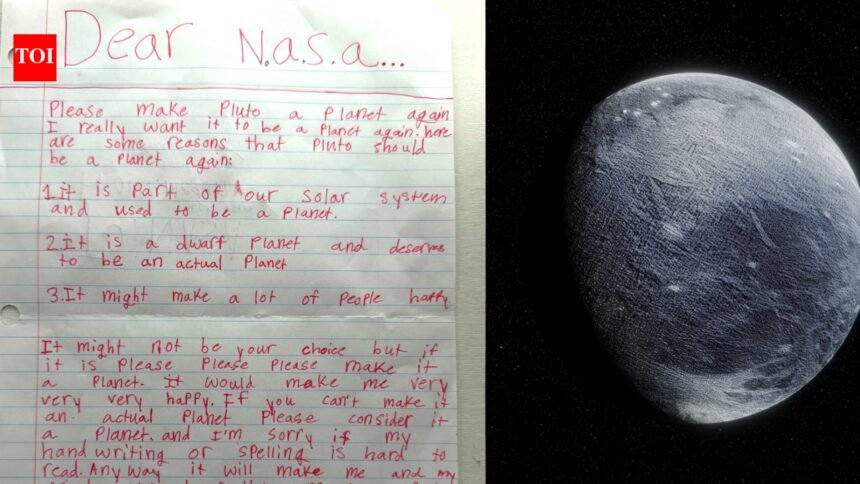 TOI
Dear N.a.s.a...
Please make Pluto a Planet again
I really want it to be a Planet again. here
are some reasons that Pluto should
be a Planet again:
1. It is Part of our solar system
and used to be a Planet.
2. It is a dwarf Planet and deserves
to be an actual Planet
3. It might make a lot of People happy.
It might not be your choice but if
it is Please Please Please make it
a Planet. It would make me very
very very happy. If you can't make it
an actual Planet Please consider it
a Planet. and I'm sorry if my
hand writing or spelling is hard to
read. Any way it will make me and my